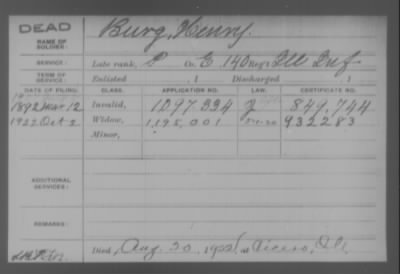 DEAD
NAME OF SOLDIER:
Burg, Henry.
SERVICE:
Late rank, P Co. E, 140 Reg't Ill Inf
TERM OF SERVICE:
Enlisted , 1 Discharged , 1
DATE OF FILING. CLASS. APPLICATION NO. LAW. CERTIFICATE NO.
1892 Mar 12 Invalid, 1097.334 849.744
1922 Oct 2 Widow, 1,195,001 932283
Minor,
ADDITIONAL SERVICES:
REMARKS:
Died Aug. 20, 1922, at Cicero, Ill